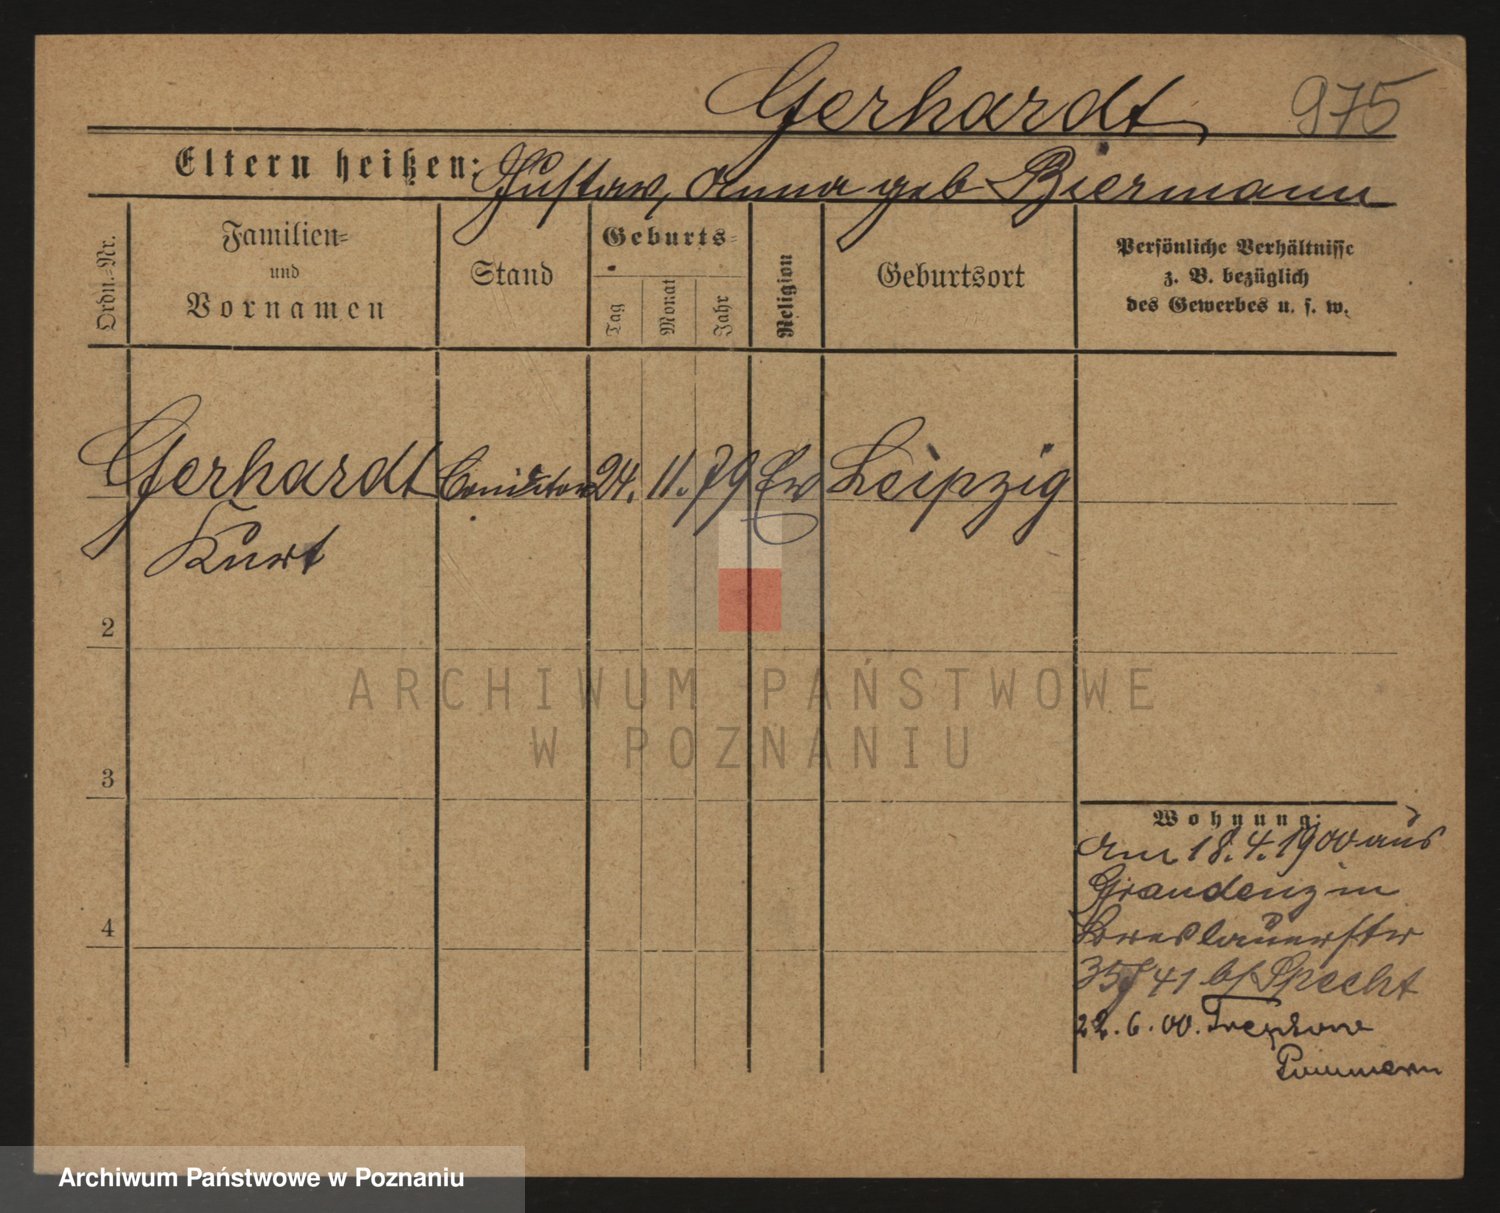 Gerhardt 975
Eltern heißen: Gustav, Anna geb Biermann
Ordn.-Nr.
Familien-
und
Vornamen
Stand
Geburts-
Tag
Monat
Jahr
Religion
Geburtsort
Persönliche Verhältnisse
z. B. bezüglich
des Gewerbes u. s. w.
Gerhardt Conditor 24. 11. 79 Ev Leipzig
Kurt
2
3
4
Wohnung:
Am 18.4.1900 aus
Graudenz in
Breslauerstr
35/41 b/ Specht
22.6.00. Treptow
Pommern
ARCHIWUM PAŃSTWOWE
W POZNANIU
Archiwum Państwowe w Poznaniu